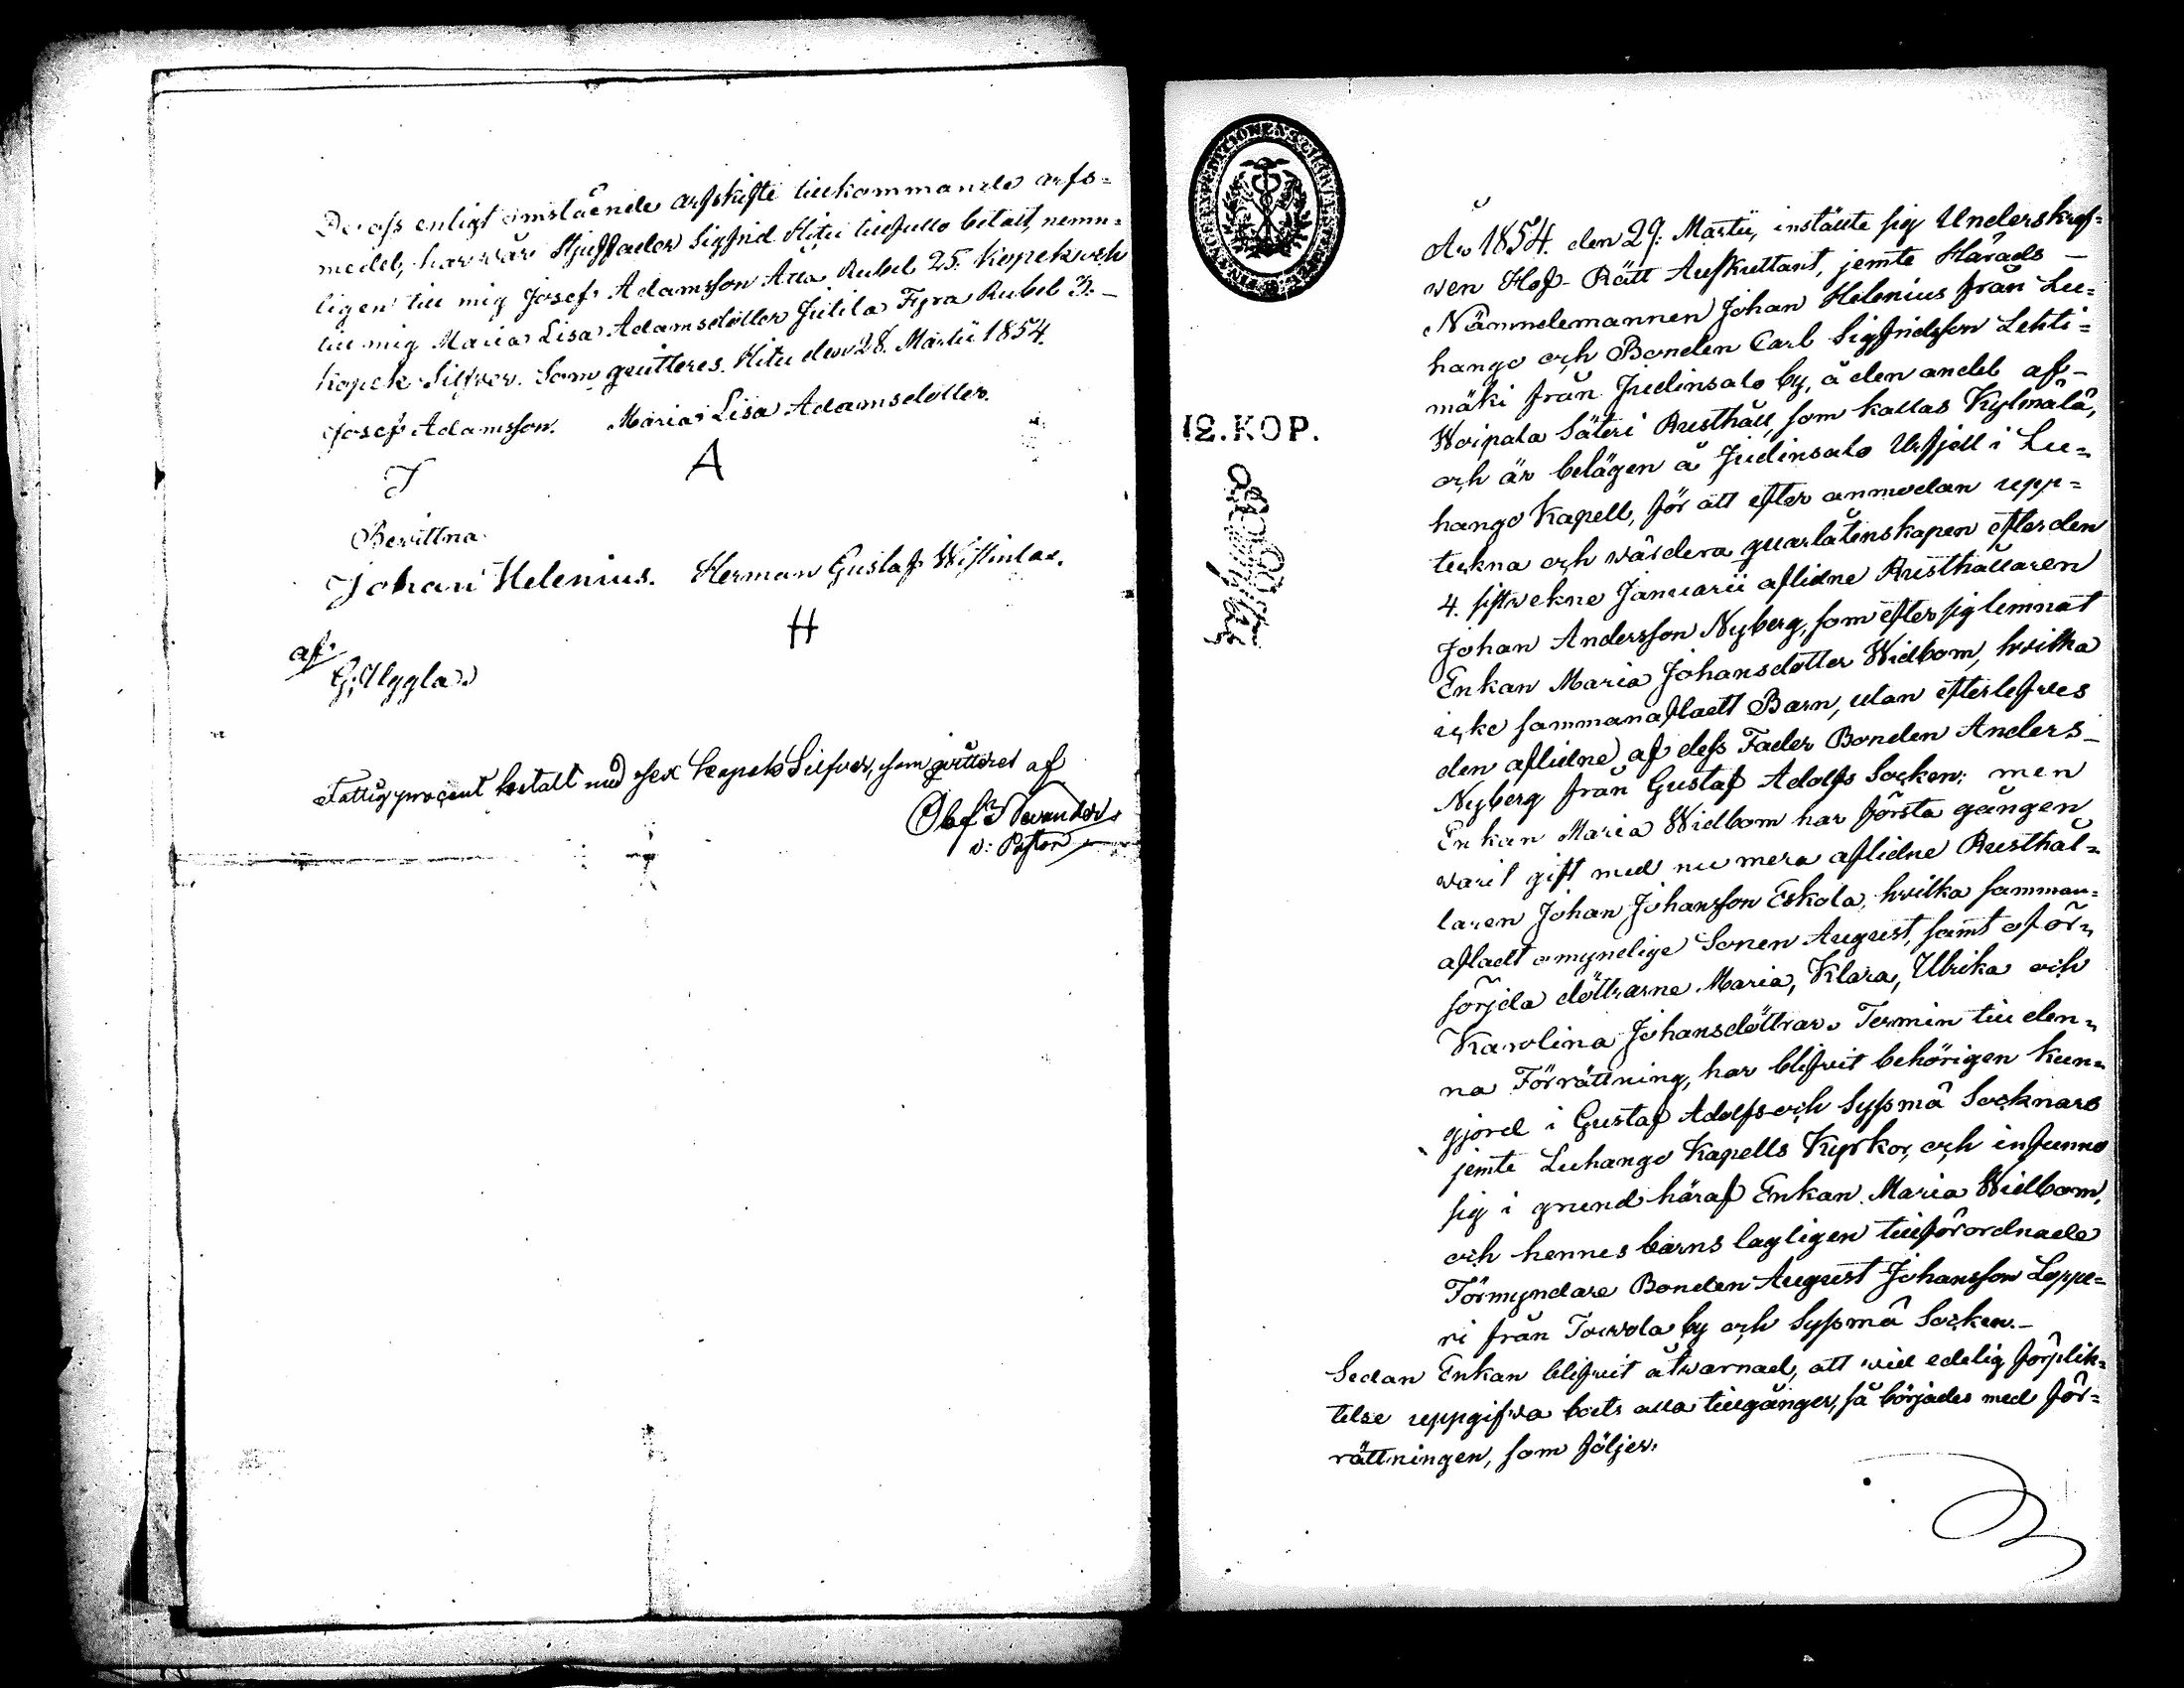 Derass enligt omstående arfskifte tillkommande arfs=
medel, har wår Stjuffader Sigfrid Hitu tillfullo betalt, nemn=
ligen till mig Josef Adamsson Åtta Rubel 25. Kopek och
till mig Maria Lisa Adamsdotter Jutila Fyra Rubel 3.–
Kopek Silfver. Som quitteres. Hitu den 28. Martii 1854.
Josef Adamsson. Maria Lisa Adamsdotter.
J A
Bevittna
Johan Helenius. Herman Gustaf
H
af.
G. Uggla.
Fattigprocent betalt med sex kopek Silfver, som quitteras af
Olof
v: Pastor
12. KOP.
År 1854. den 29. Martii, instälte sig Underskref=
ven Hof-Rätt Auskultant, jemte Härads –
Nämndemannen Johan Helenius från Lu=
hango och Bonden Carl Sigfridsson Lehti=
mäki från Judinsalo by, å den andel af –
Woipala Säteri Rusthåll, som kallas Kylmälä,
och är belägen å Judinsalo Utfjell i Lu=
hango Kapell, för att efter anmodan upp=
tekna och wärdera quarlåtenskapen efter den
4. sistwekne Januarii aflidne Rusthållaren
Johan Andersson Nyberg, som efter sig lemnat
Enkan Maria Johansdotter Widbom, hvilka
icke sammanafladt Barn, utan efterlefves
den aflidne af dess Fader Bonden Anders –
Nyberg från Gustaf Adolfs Socken; men
Enkan Maria Widbom har första gången
warit gift med nu mera aflidne Rusthål=
laren Johan Johansson Eskola, hvilka samman=
afladt omyndige Sonen August, samt oför=
sörjda döttrarne Maria, Klara, Ulrika och
Karolina Johansdöttrar. Termin till den=
na Förrättning, har blifvit behörigen kun=
gjord i Gustaf Adolfs och Syssmä Socknars
jemte Luhango Kapells Kyrkor, och infunno
sig i grund häraf Enkan Maria Widbom,
och hennes barns lagligen tillförordnade
Förmyndare Bonden August Johansson Lappe=
ri från Towola by och Syssmä Socken. –
Sedan Enkan blifvit åtvarnad, att wid edelig förplik=
telse uppgifva boets alla tillgångar, så börjades med för=
rättningen, som följer: